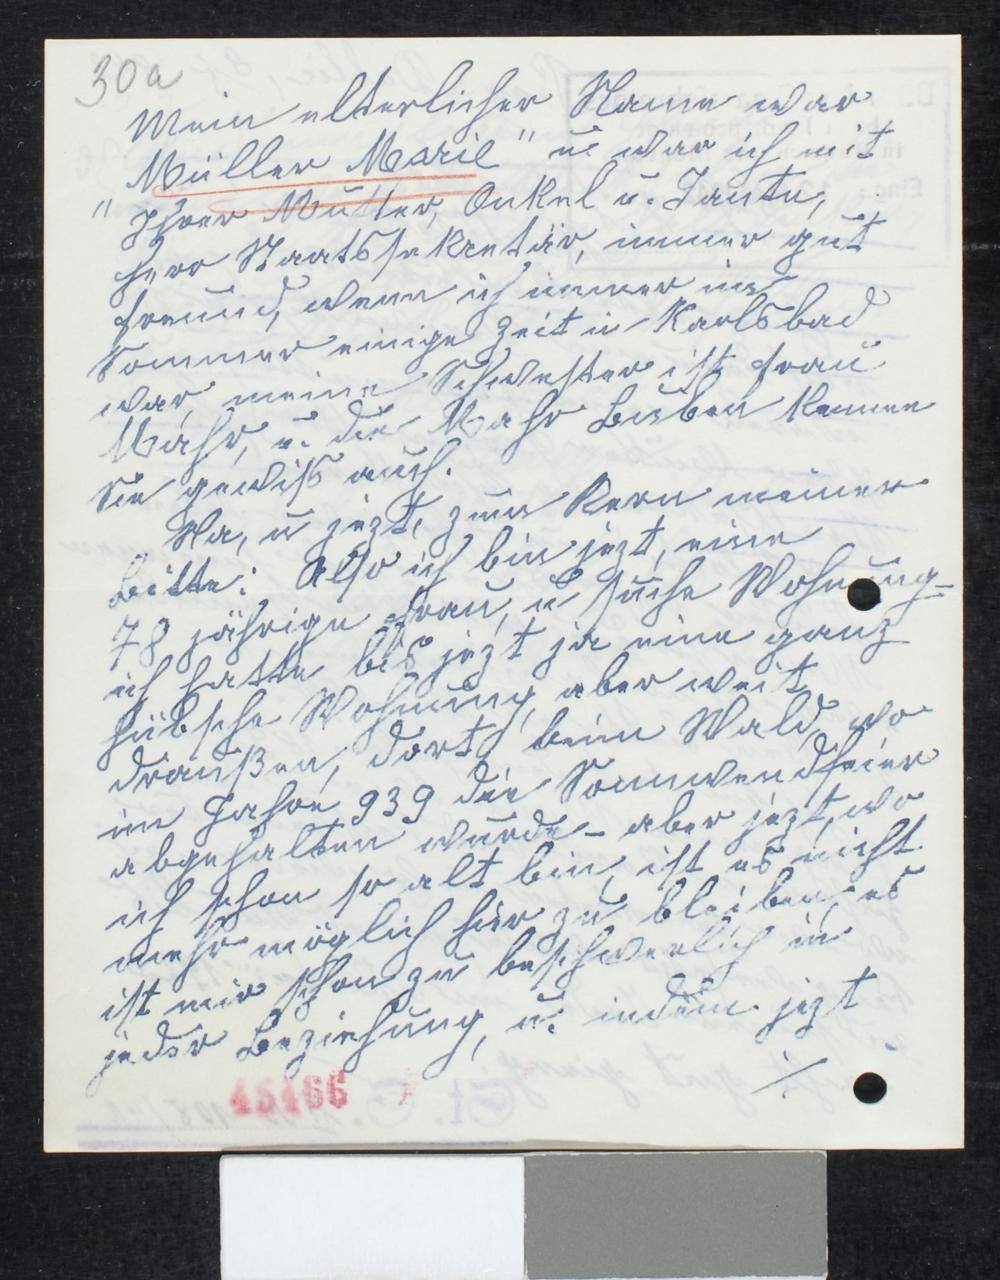 30a
Mein elterlicher Name war
"Müller Marie" u. war ich mit
Ihrer Mutter, Onkel u. Tante,
Herr Staatssekretär, immer gut
freund, wenn ich immer im
Sommer einige Zeit in Karlsbad
war, meine Schwester ist frau
Mähr, u. die Mahr Buben kennen
Sie gewiß auch.
Na, u jezt, zum Kern meiner
bitte: Also ich bin jezt, eine
78 jährige frau, u suche Wohnung-
ich hatte bis jezt ja eine ganz
hübsche Wohnung, aber weit
draußen, dort beim Wald, wo
im Jahre 939 die Sonnwendfeier
abgehalten wurde - aber jezt, wo
ich schon so alt bin, ist es nicht
mehr möglich hier zu bleiben, es
ist mir schon zu beschwerlich in
jeder Beziehung, u. indem jezt
./.
45466